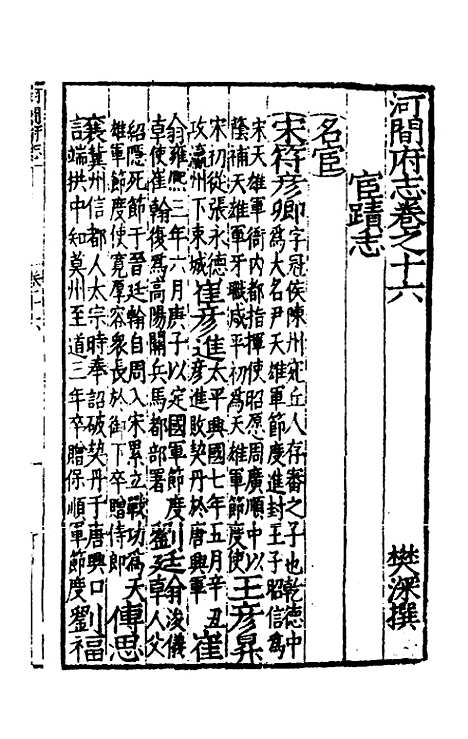 河間府志卷之十六
宦蹟志 樊深撰
名宦
宋符彥卿即字冠侯陳州宛丘人存審之子也乾德中
卯為大名尹天雄軍節度進封王子昭信為
宋天雄軍衙内都指揮使昭愿周廣順中以
蔭補天雄軍牙職咸平初為天雄軍節度使王彥昇
宋初從張永德
攻瀛州下束城崔彥進太平興國七年五月辛丑
彥進敗契丹於唐興軍崔
翁雍熙三年六月庚子以定國軍節度劉廷翁浚儀
卓使崔翰復為高陽關兵馬都部署劉廷卓人父
紹隱死節于晉廷翰自周入宋累立戰功為天
雄軍節度使寬厚容衆長於御下卒贈侍郎傅思
襄冀州信都人太宗時奉詔破契丹于唐興口
言端拱中知莫州至道三年卒贈保順軍節度劉福